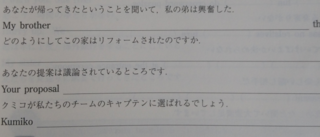 あなたが帰ってきたということを聞いて，私の弟は興奮した．
My brother th
どのようにしてこの家はリフォームされたのですか．
あなたの提案は議論されているところです．
Your proposal
クミコが私たちのチームのキャプテンに選ばれるでしょう．
Kumiko